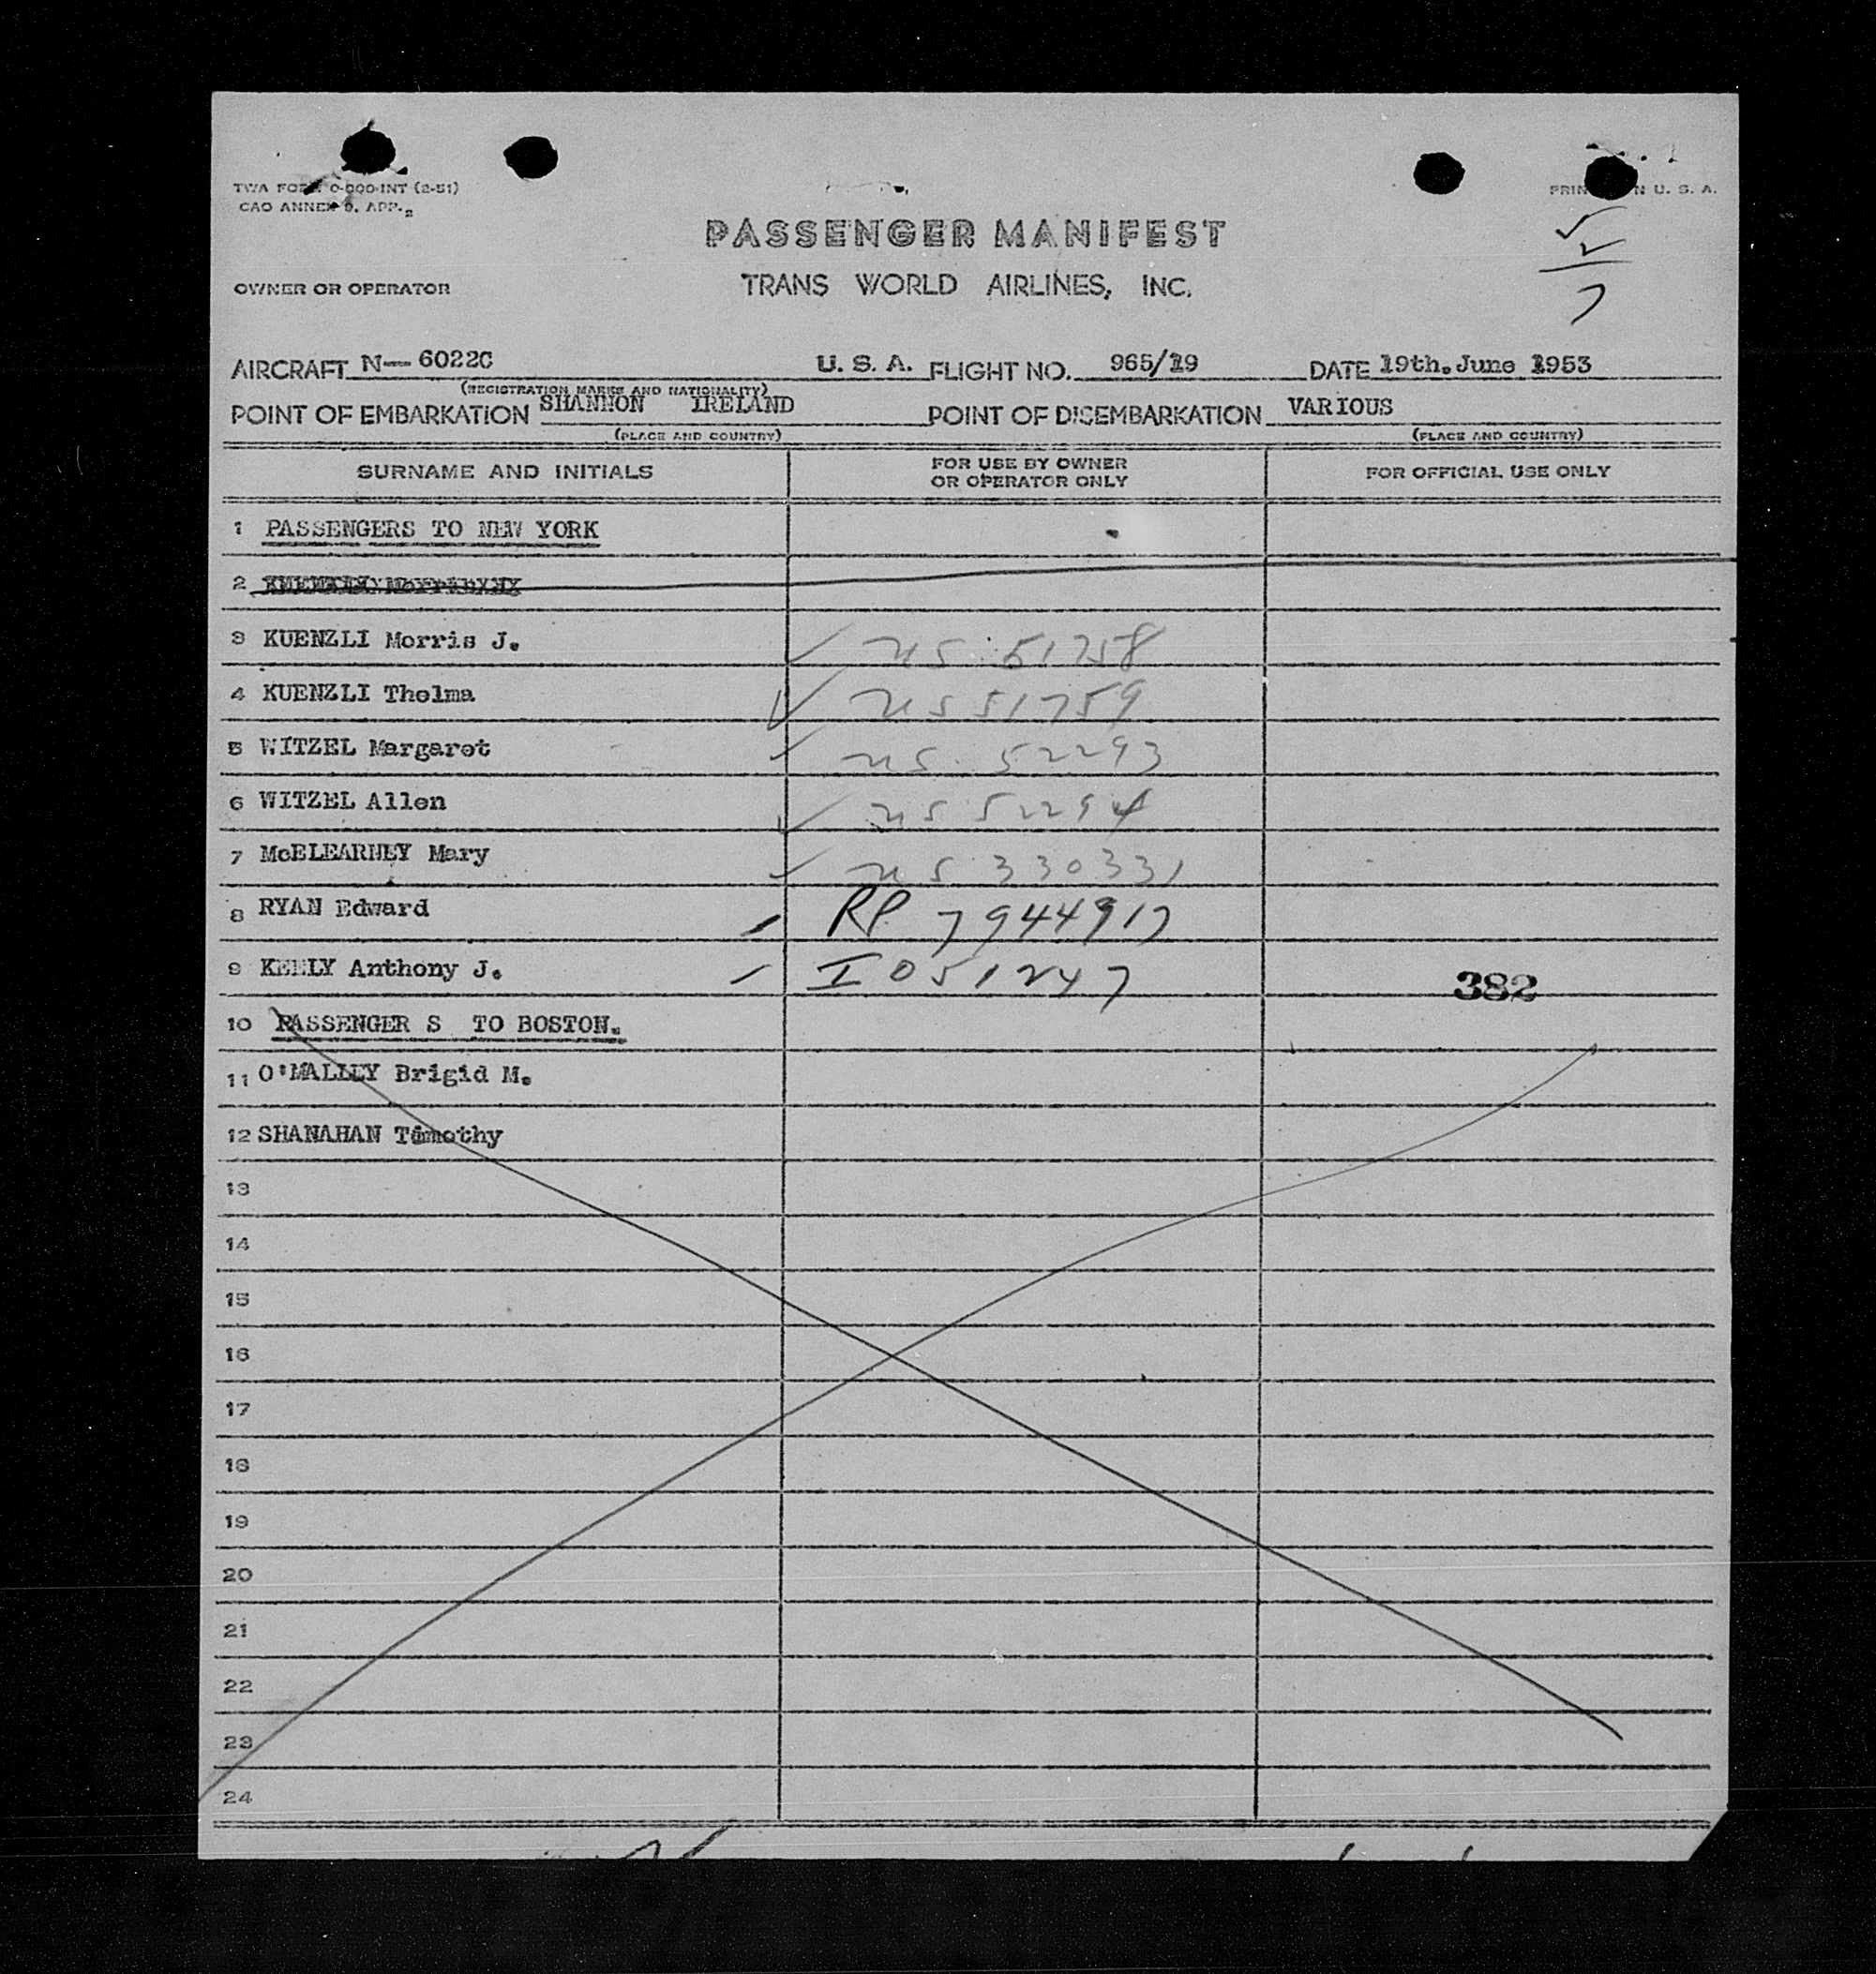 TWA FORM 0-000-INT (2-51) PRIN N U. S. A.
CAO ANNEX 9, APP. 2
PASSENGER MANIFEST
OWNER OR OPERATOR TRANS WORLD AIRLINES, INC.
5
2
7
AIRCRAFT N— 6022C U. S. A. FLIGHT NO. 965/19 DATE 19th. June 1953
(REGISTRATION MARKS AND NATIONALITY)
POINT OF EMBARKATION SHANNON IRELAND POINT OF DISEMBARKATION VARIOUS
(PLACE AND COUNTRY) (PLACE AND COUNTRY)
SURNAME AND INITIALS FOR USE BY OWNER OR OPERATOR ONLY FOR OFFICIAL USE ONLY
1 PASSENGERS TO NEW YORK
2
3 KUENZLI Morris J. ✓ US 51758
4 KUENZLI Thelma ✓ US 51759
5 WITZEL Margaret ✓ US 52293
6 WITZEL Allen ✓ US 52294
7 McELEARNEY Mary ✓ US 330331
8 RYAN Edward RP 7944917
9 KEELY Anthony J. I 051247 382
10 PASSENGER S TO BOSTON.
11 O'MALLEY Brigid M.
12 SHANAHAN Timothy
13
14
15
16
17
18
19
20
21
22
23
24